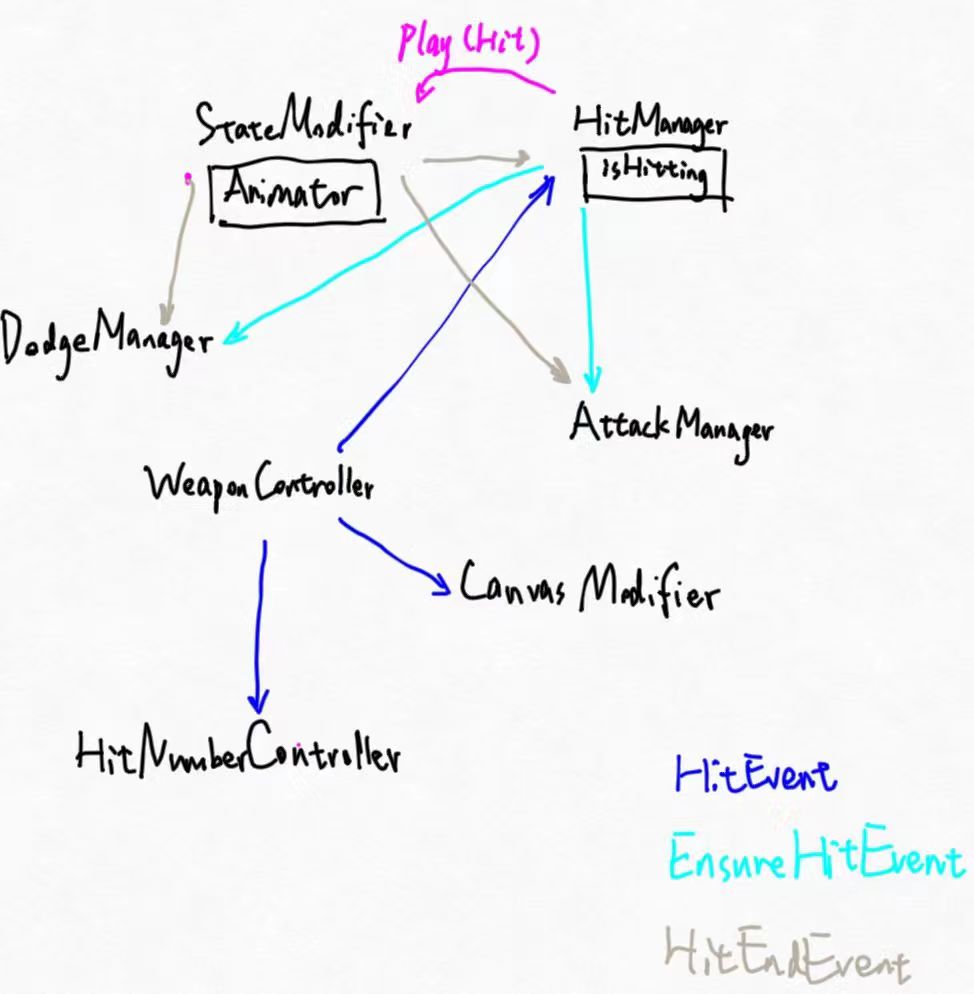 Play (Hit)
StateModifier
HitManager
Animator
isHitting
DodgeManager
AttackManager
WeaponController
Canvas Modifier
HitNumberController
HitEvent
EnsureHitEvent
HitEndEvent